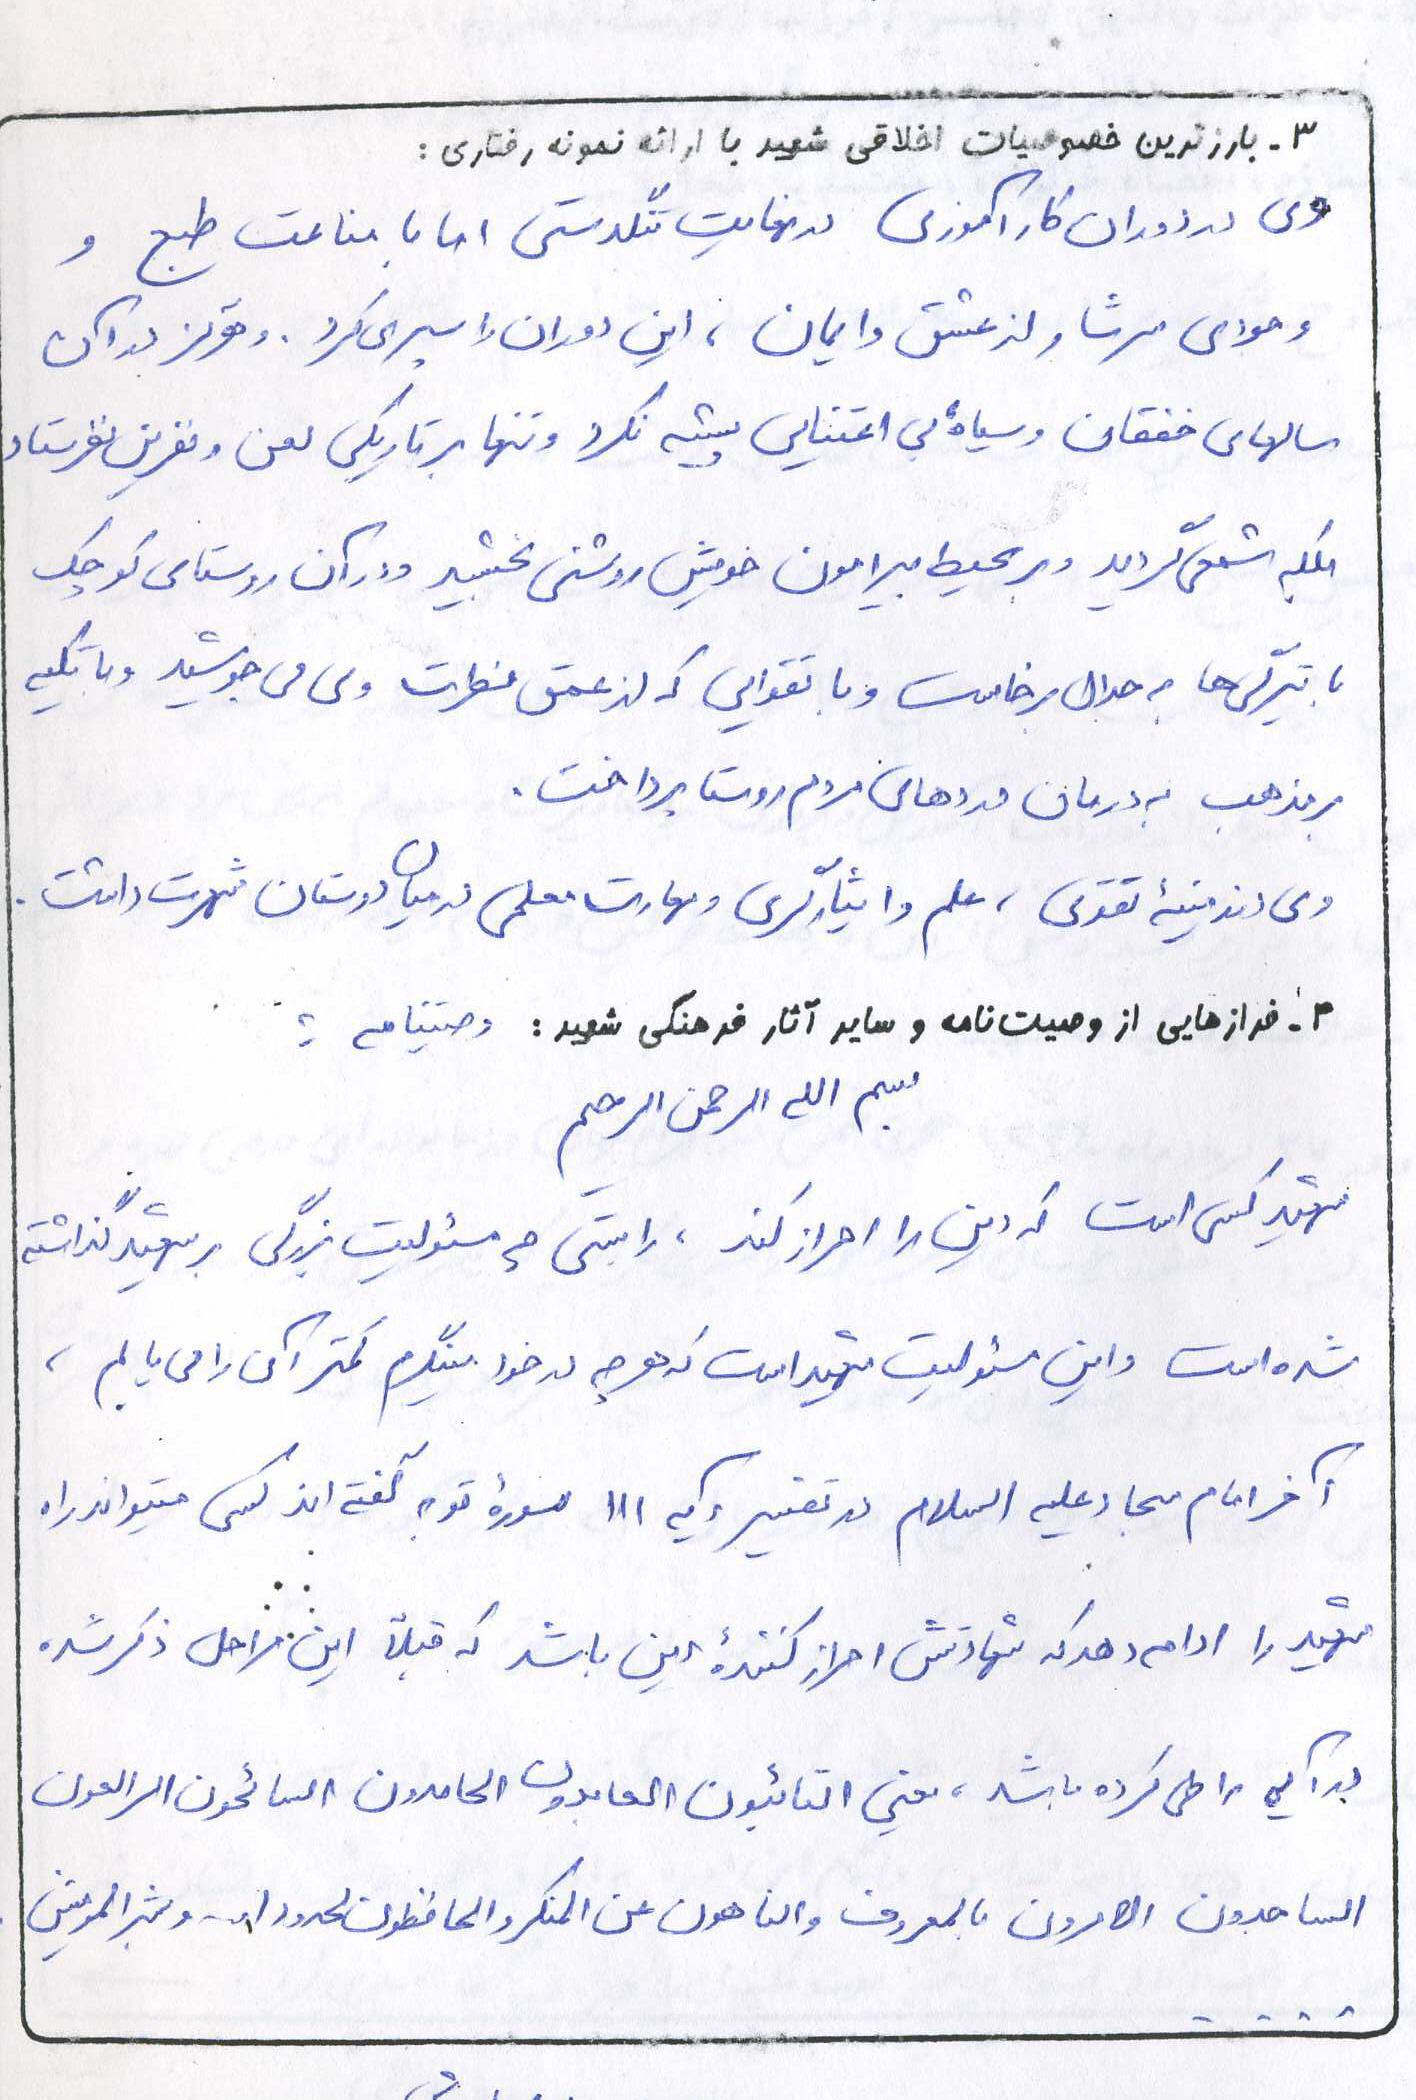 ۳ـ بارزترین خصوصیات اخلاقی شهید با ارائه نمونه رفتاری :
وی در دوران کارآموزی در نهایت تنگدستی اما با مناعت طبع و
وجودی سرشار از عشق و ایمان ، این دوران را سپری کرد . و هرگز در آن
سالهای خفقان و سیاه بی اعتنایی پیشه نکرد و تنها بر تاریکی لعن و نفرین نفرستاد
بلکه شمعی گردید و بر محیط پیرامون خویش روشنی بخشید و در آن روستای کوچک
با تیرگی‌ها به جدال برخاست و با تقوایی که از عمق فطرت وی می جوشید و با تکیه
بر مذهب به درمان دردهای مردم روستا پرداخت .
وی در زمینهٔ تقوی ، علم و ایثارگری و مهارت معلمی در میان دوستان شهرت داشت .
۴ـ فرازهایی از وصیت‌نامه و سایر آثار فرهنگی شهید : وصیتنامه :
بسم الله الرحمن الرحیم
شهید کسی است که دین را احراز کند ، راستی چه مسئولیت بزرگی بر شهید گذاشته
شده است و این مسئولیت شهید است که هر چه در خود مینگرم کمتر آن را می یابم ،
آخر امام سجاد علیه السلام در تفسیر آیه ۱۱۱ سورهٔ توبه گفته اند کسی میتواند راه
شهید را ادامه دهد که شهادتش احراز کنندهٔ دین باشد که قبلاً این مراحل ذکر شده
در آیه را طی کرده باشد ، یعنی التائبون العابدون الحامدون السائحون الراکعون
الساجدون الامرون بالمعروف والناهون عن المنکر والحافظون لحدود الله و بشر المومنین
. . . .